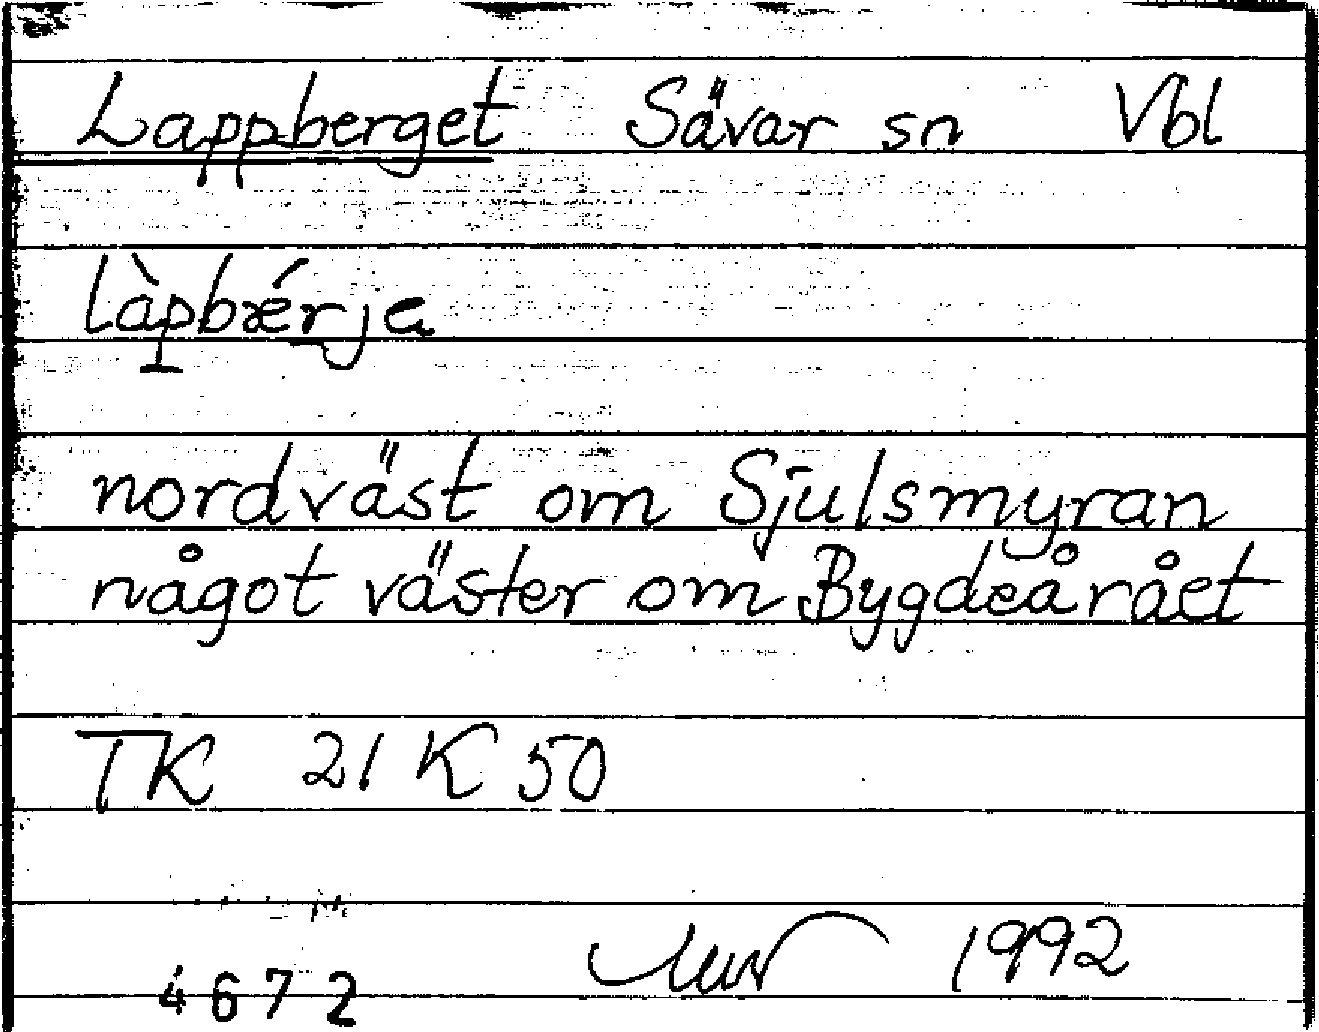 Lappberget Sävar sn Vbl
làpbærja
nordväst om Sjulsmyran
något väster om Bygdeårået
TK 21 K 50
1992
4672